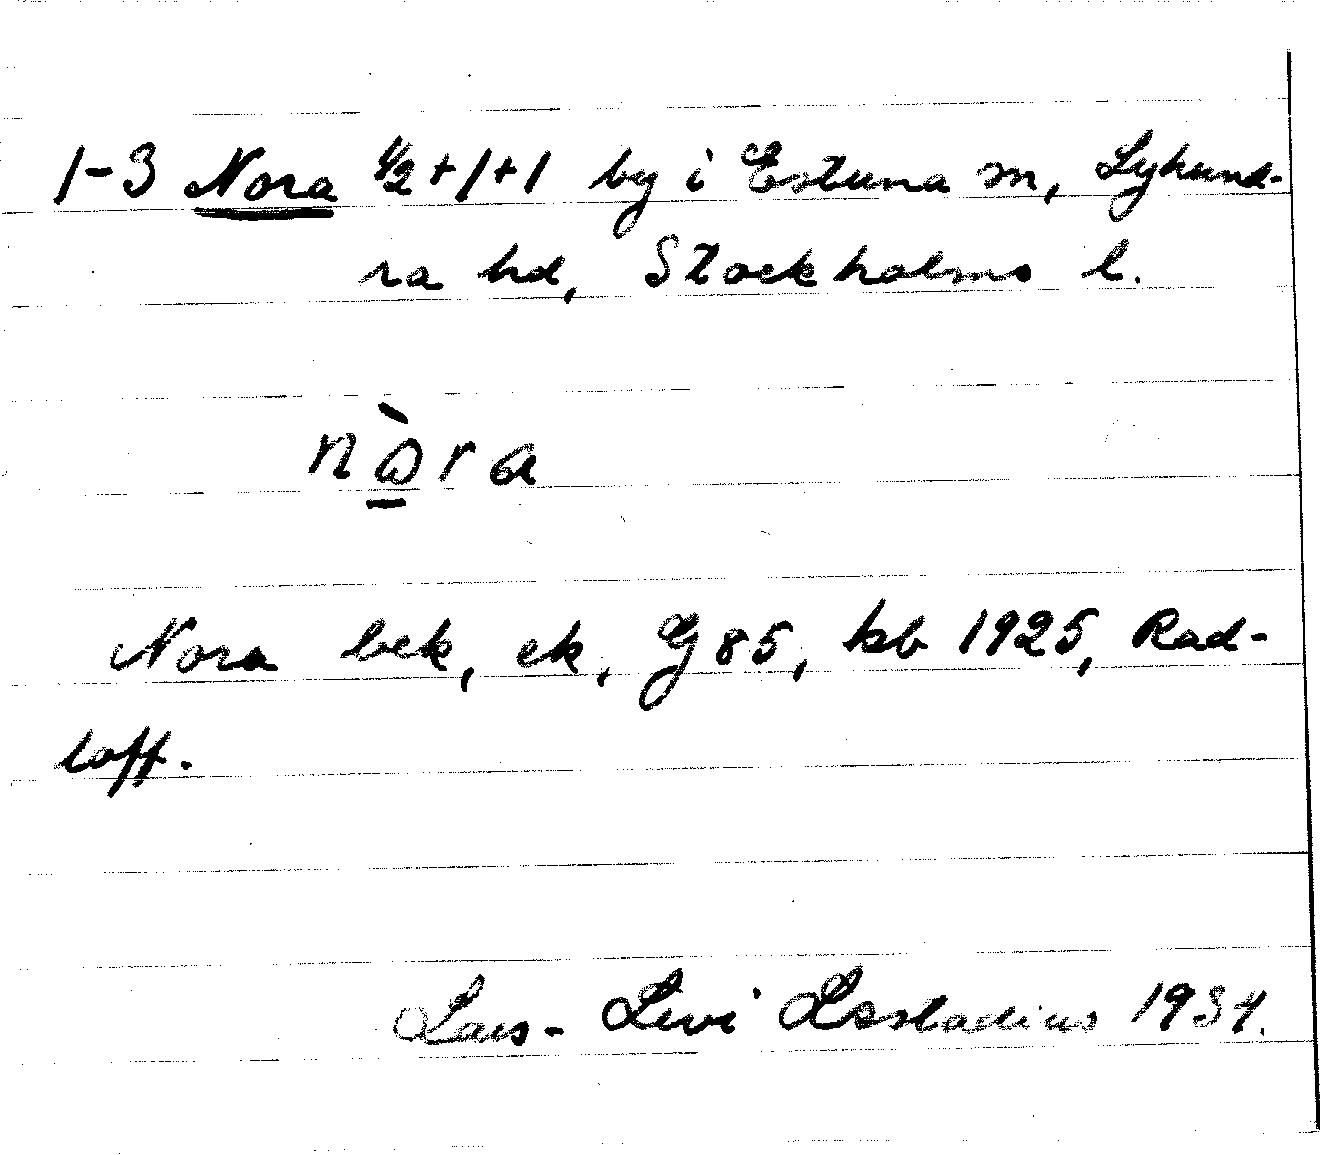 1-3 Nora ½+1+1 by i Estuna sn, Lyhund-
ra hd, Stockholms l.
nò̱ra
Nora bek, ek, G85, kb 1925, Rad-
loff.
Lars-Levi Læstadius 1934.